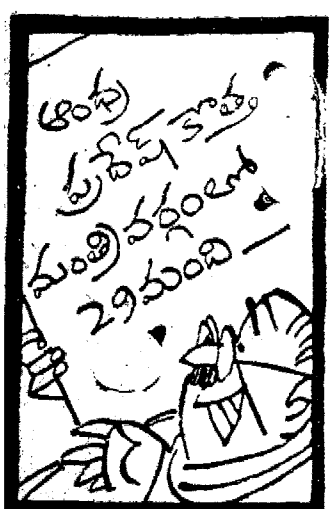 ఆంధ్ర
ప్రదేశ్ కొత్త
మంత్రి వర్గంలో
29 మంది —